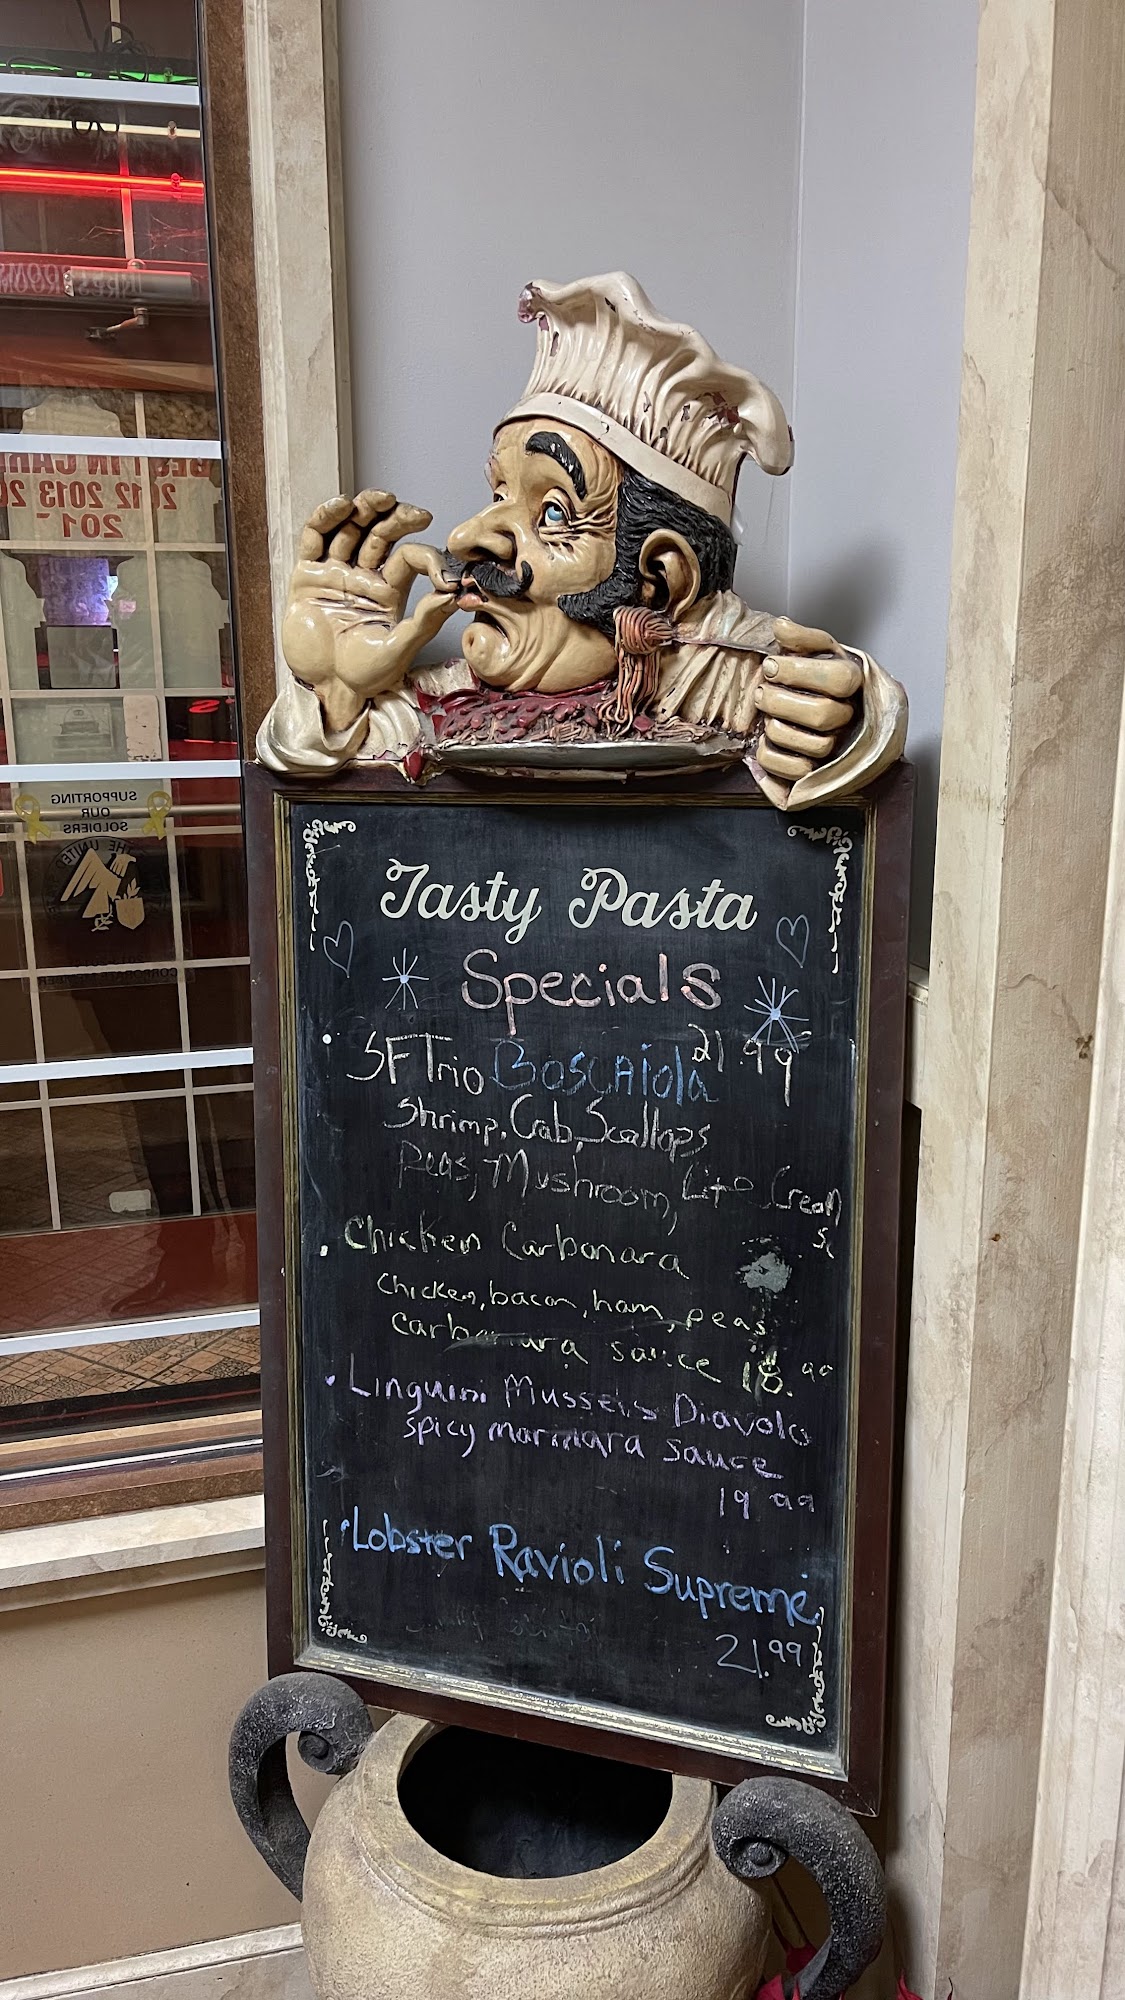 RESTROOMS
BEST IN CAR
2012 2013 20
201
SUPPORTING
OUR
SOLDIERS
THE UNITE
Tasty Pasta
Specials
SF Trio Boscaiola 21.99
Shrimp, Crab, Scallops
Peas, Mushroom, Lite Cream
Sc
Chicken Carbonara
Chicken, bacon, ham, peas
carbonara sauce 18.99
Linguini Mussels Diavolo
spicy marinara sauce
19.99
Lobster Ravioli Supreme
21.99